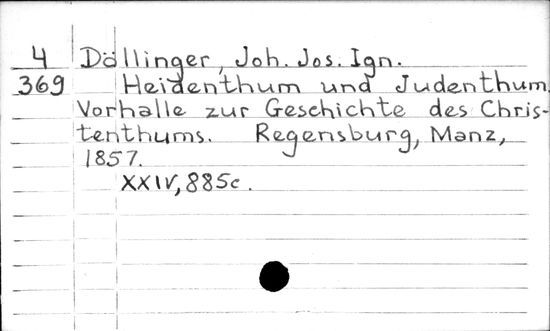 4 Döllinger, Joh. Jos. Ign.
369 Heidenthum und Judenthum.
Vorhalle zur Geschichte des Chris-
tenthums. Regensburg, Manz,
1857.
XXIV, 885c.